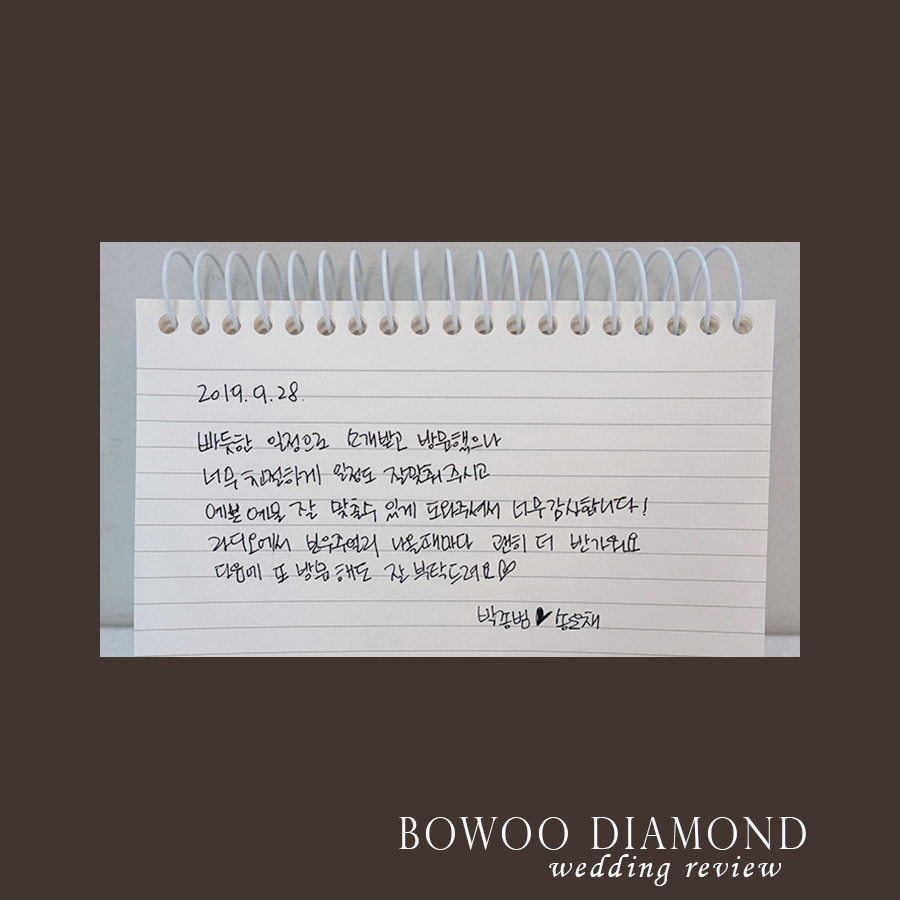 2019.9.28.
빠듯한 일정으로 소개받고 방문했으나
너무 친절하게 일정도 잘맞춰주시고
예쁜 예물 잘 맞출수 있게 도와주셔서 너무감사합니다!
라디오에서 보우주얼리 나올때마다 괜히 더 반가워요
다음에 또 방문해도 잘 부탁드려요♡
박종범 ♥
BOWOO DIAMOND
wedding review